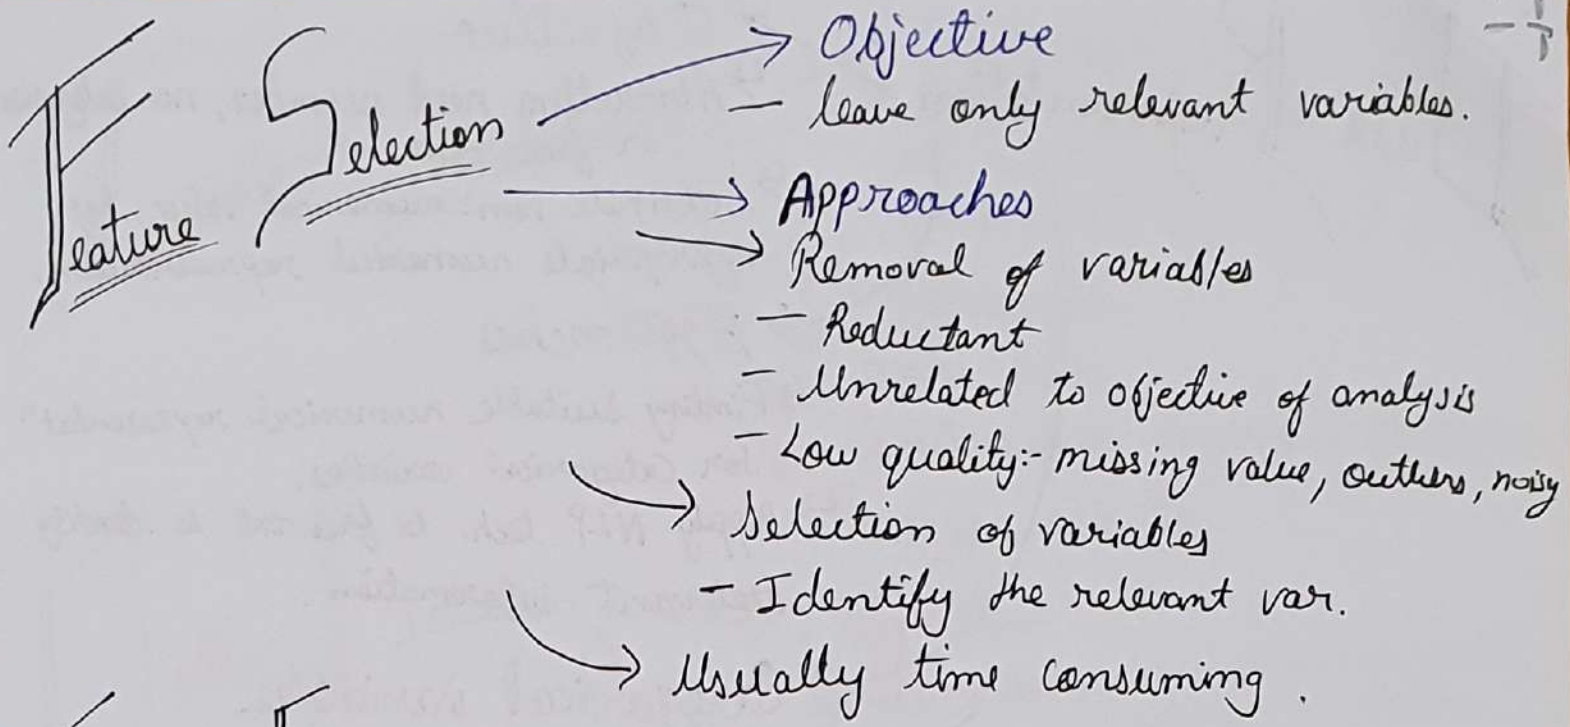 Feature Selection
→ Objective
- leave only relevant variables.
→ Approaches
→ Removal of variables
- Reductant
- Unrelated to objective of analysis
- Low quality:- missing value, outliers, noisy
→ Selection of variables
- Identify the relevant var.
→ Usually time consuming.